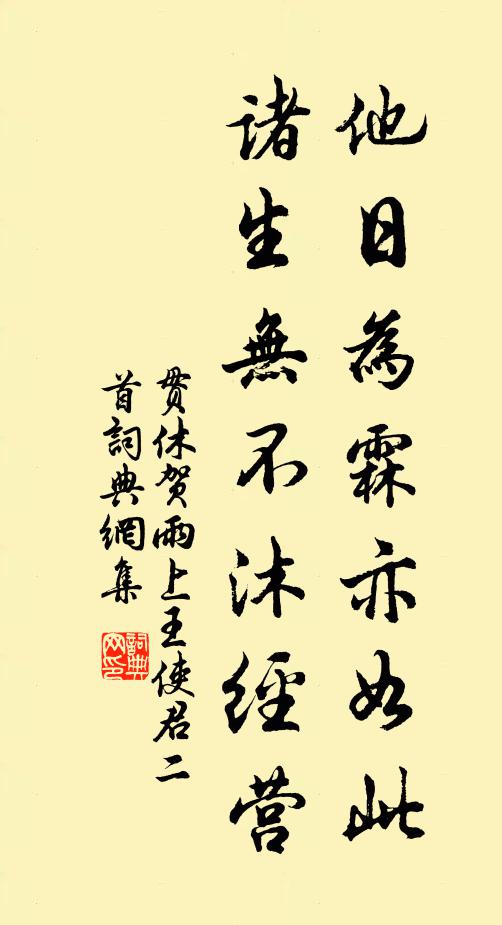 他日為霖亦如此
諸生無不沐經营
貫休賀雨上王使君二
首詞典網集
詞典
网印